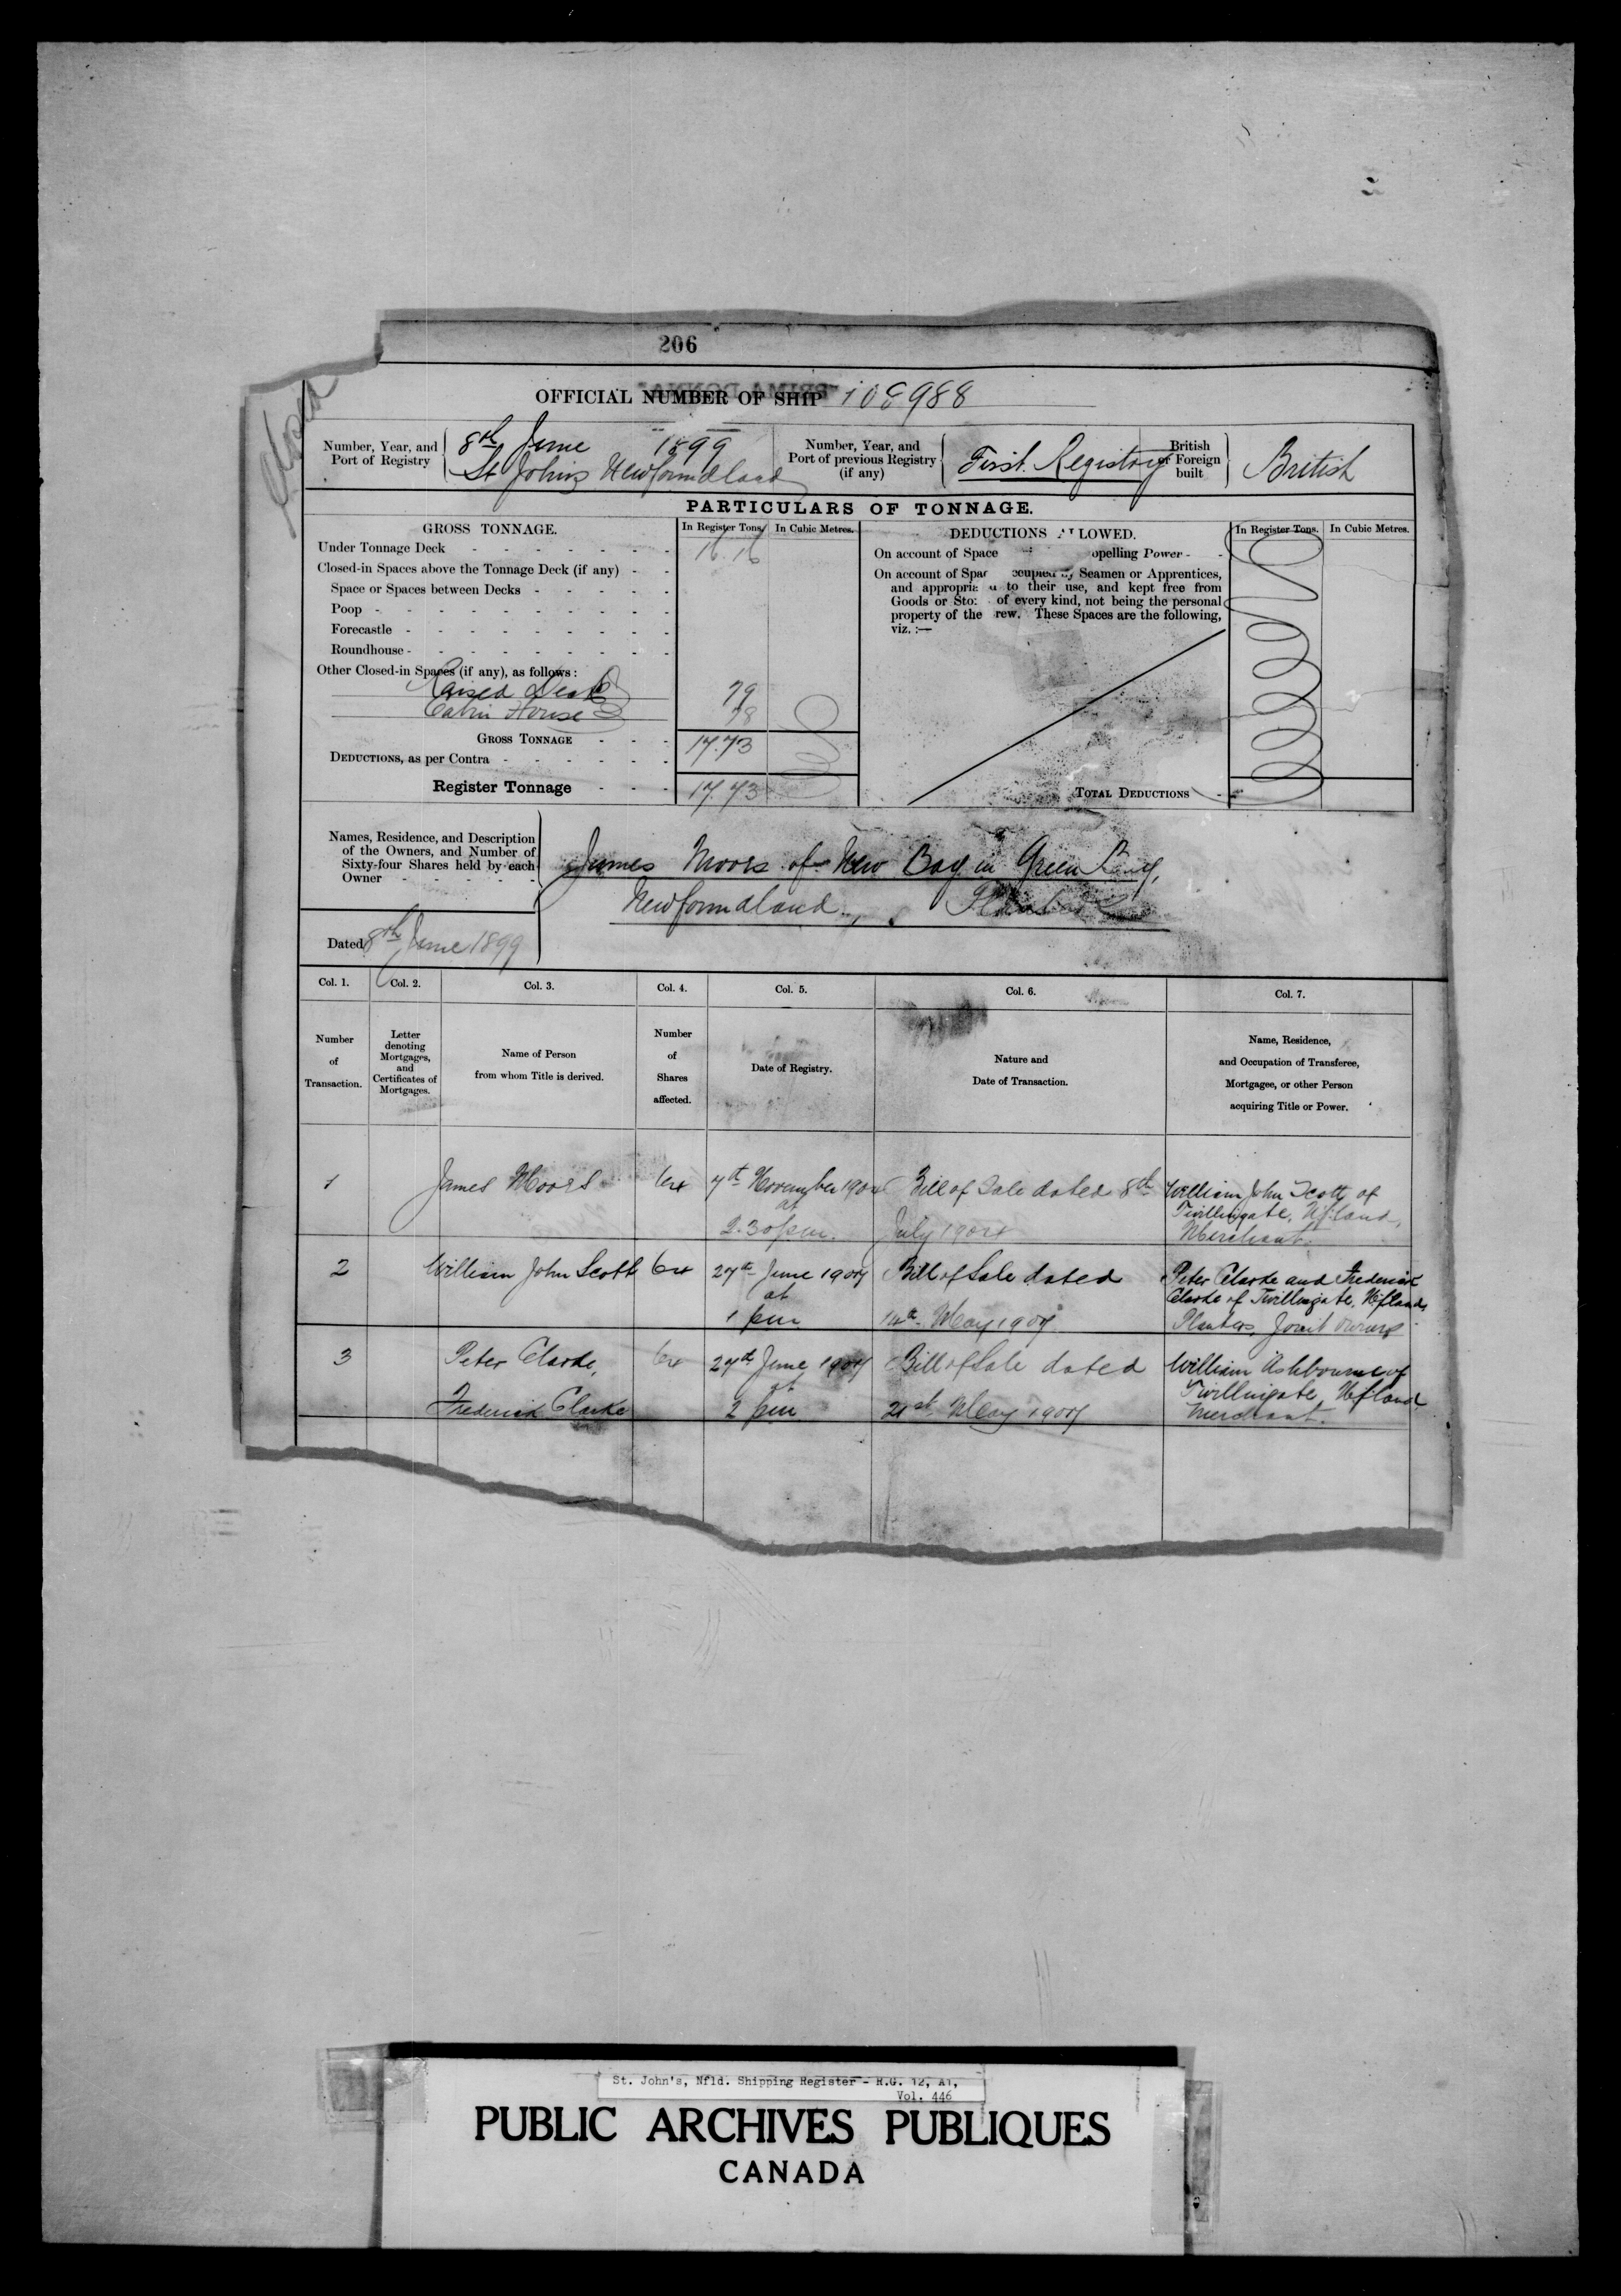 206
OFFICIAL NUMBER OF SHIP 108988
Closed
Number, Year, and Port of Registry
8th June 1899
St Johns Newfoundland
Number, Year, and Port of previous Registry (if any)
First Registry
British or Foreign built
British
PARTICULARS OF TONNAGE.
GROSS TONNAGE.
In Register Tons.
In Cubic Metres.
DEDUCTIONS ALLOWED.
In Register Tons.
In Cubic Metres.
Under Tonnage Deck - - - - - - - 16.16
Closed-in Spaces above the Tonnage Deck (if any) - -
Space or Spaces between Decks - - - - -
Poop - - - - - - - - -
Forecastle - - - - - - - -
Roundhouse - - - - - - - -
Other Closed-in Spaces (if any), as follows:
Raised Deck 79
Cabin House 78
GROSS TONNAGE - - - 17.73
DEDUCTIONS, as per Contra - - - - - -
Register Tonnage - - - 17.73
On account of Space opelling Power - -
On account of Spac ccupied by Seamen or Apprentices,
and appropria to their use, and kept free from
Goods or Sto of every kind, not being the personal
property of the rew. These Spaces are the following,
viz. :—
TOTAL DEDUCTIONS -
Names, Residence, and Description
of the Owners, and Number of
Sixty-four Shares held by each
Owner - - - - -
James Moors of New Bay in Green Bay,
Newfoundland, Planter
Dated 8th June 1899
Col. 1.
Col. 2.
Col. 3.
Col. 4.
Col. 5.
Col. 6.
Col. 7.
Number of Transaction.
Letter denoting Mortgages, and Certificates of Mortgages.
Name of Person from whom Title is derived.
Number of Shares affected.
Date of Registry.
Nature and Date of Transaction.
Name, Residence, and Occupation of Transferee, Mortgagee, or other Person acquiring Title or Power.
1 James Moors 64 7th November 1904 Bill of Sale dated 8th William John Scott of
at Twillingate, Nfland,
2.30 pm. July 1904 Merchant.
2 William John Scott 64 27th June 1907 Bill of Sale dated Peter Clarke and Frederick
at Clarke of Twillingate, Nfland,
1 pm 14th May 1907 Planters, Joint owners
3 Peter Clarke, 64 27th June 1907 Bill of Sale dated William Ashbourne of
at Twillingate, Nfland
Frederick Clarke 2 pm 21st May 1907 Merchant.
St. John's, Nfld. Shipping Register - R.G. 12, A1,
Vol. 446
PUBLIC ARCHIVES PUBLIQUES
CANADA